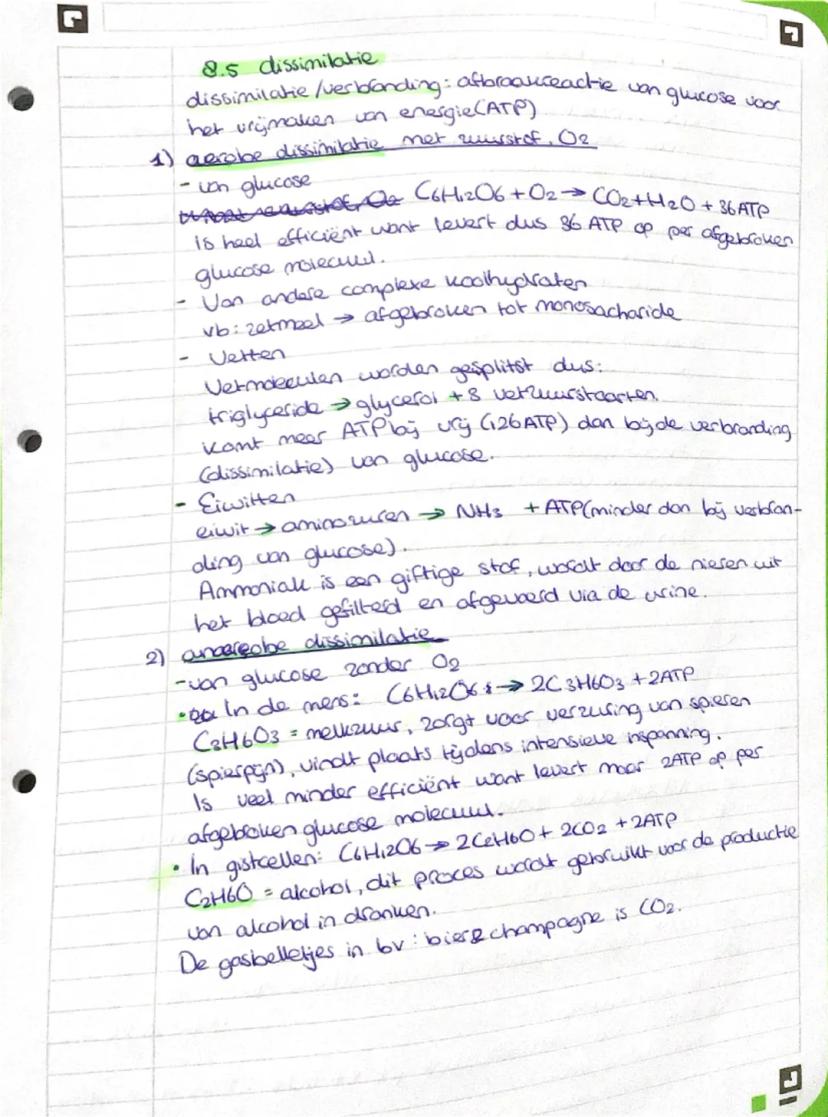 8.5 dissimilatie
dissimilatie/verbranding: afbraakreactie van glucose voor
het vrijmaken van energie (ATP)
1) aerobe dissimilatie met zuurstof, O2
- van glucose
C6H12O6 + O2 → CO2 + H2O + 36 ATP
is heel efficiënt want levert dus 36 ATP op per afgebroken
glucose molecuul.
- Van andere complexe koolhydraten
vb: zetmeel → afgebroken tot monosacharide
- Vetten
Vetmoleculen worden gesplitst dus:
triglyceride → glycerol + 3 vetzuurstaarten.
Komt meer ATP bij vrij (126 ATP) dan bij de verbranding
(dissimilatie) van glucose.
- Eiwitten
eiwit → aminozuren → NH3 + ATP (minder dan bij verbran-
ding van glucose).
Ammoniak is een giftige stof, wordt door de nieren uit
het bloed gefilterd en afgevoerd via de urine.
2) anaerobe dissimilatie
- van glucose zonder O2
• In de mens: C6H12O6 → 2C3H6O3 + 2ATP
C3H6O3 = melkzuur, zorgt voor verzuring van spieren
(spierpijn), vindt plaats tijdens intensieve inspanning.
Is veel minder efficiënt want levert maar 2ATP op per
afgebroken glucose molecuul.
• In gistcellen: C6H12O6 → 2C2H6O + 2CO2 + 2ATP
C2H6O = alcohol, dit proces wordt gebruikt voor de productie
van alcohol in dranken.
De gasbelletjes in bv: bier & champagne is CO2.